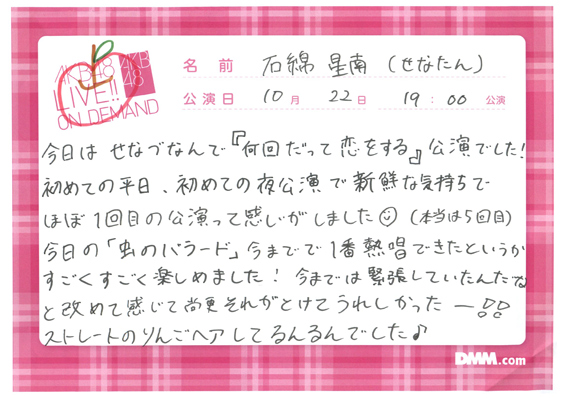 AKB48 AKB48
LIVE!!
ON DEMAND
名前 石綿 星南 (せなたん)
公演日 10月 22日 19:00 公演
今日は せなづなんで『何回だって恋をする』公演でした!
初めての平日、初めての夜公演で新鮮な気持ちで
ほぼ1回目の公演って感じがしました☺(本当は5回目)
今日の「虫のバラード」今までで1番熱唱できたというか
すごくすごく楽しめました! 今までは緊張していたんだな
と改めて感じて尚更それがとけてうれしかったー!!
ストレートのりんごヘアしてるんるんでした♪
DMM.com